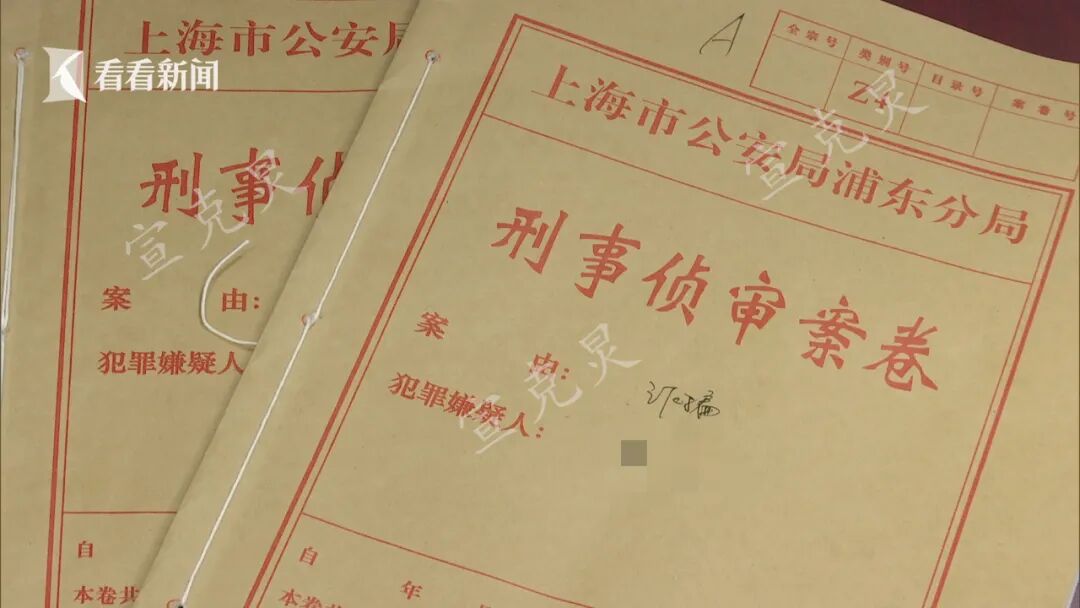 看看新闻
上海市公安局
刑事侦
案 由:
犯罪嫌疑人
自
本卷共
A
全宗号 类别号 目录号 案卷号
上海市公安局浦东分局
刑事侦审案卷
案 由:
诈骗
犯罪嫌疑人:
自 年
本卷共
宣克炅
宣克炅
宣克炅